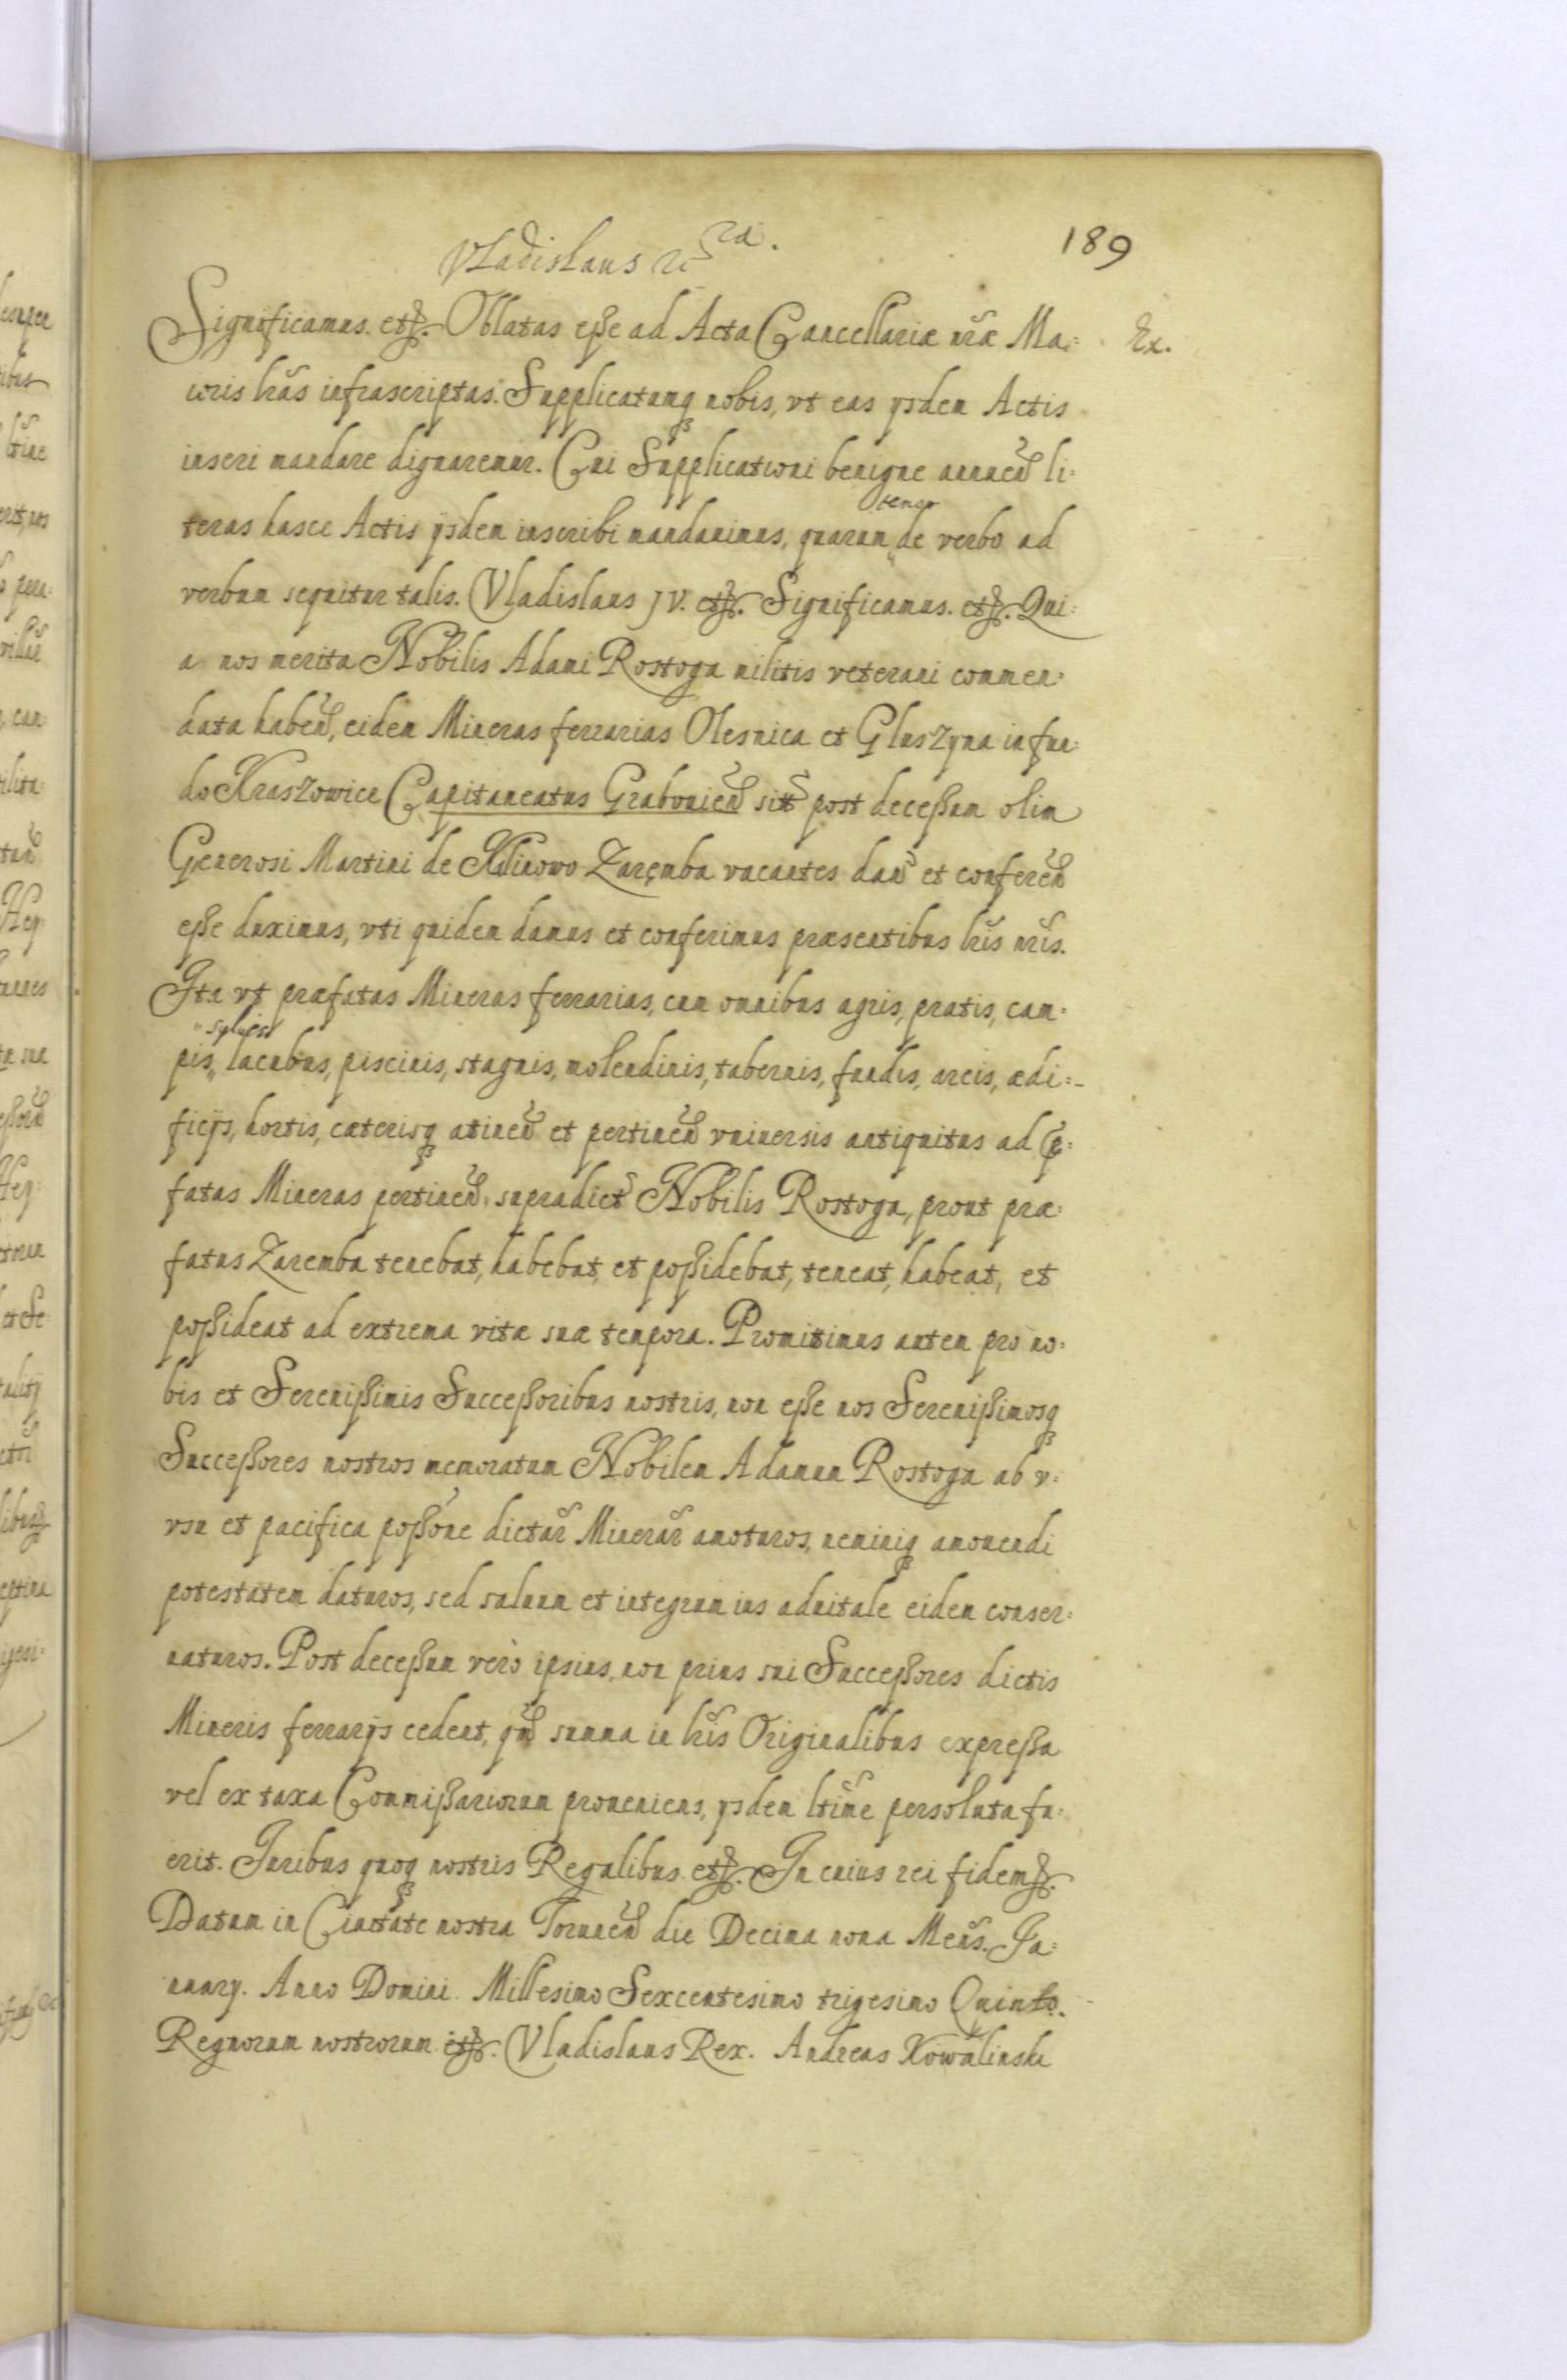 Vladislaus etc.
189
Significamus. etc. Oblatas esse ad Acta Cancellariæ nr̃æ Ma: Ex.
ioris lr̃as infrascriptas. Supplicatumq nobis, vt eas ijsdem Actis
inseri mandare dignaremur. Cui Supplicationi benigne annuen̄ li:
tenor
teras hasce Actis ijsdem inscribi mandauimus, quarum de verbo ad
verbum sequitur talis. Vladislaus IV. etc. Significamus. etc. Qui:
a nos merita Nobilis Adami Rostoga militis veterani commen:
data haben̄, eidem Mineras ferrarias Olesnica et Gluszyna in fun:
do Kraszowice Capitaneatus Grabouien̄ sit̃ post decessum olim
Generosi Martini de Kalinowo Zaręmba vacantes dan̄ et conferen̄
esse duximus, vti quidem damus et conferimus præsentibus lr̃is nr̃is.
Ita vt præfatas Mineras ferrarias, cum omnibus agris, pratis, cam:
syluis
pis, lacubus, piscinis, stagnis, molendinis, tabernis, fundis, areis, ædi:
ficijs, hortis, cæterisq atinen̄ et pertinen̄ vniuersis antiquitus ad p:
fatas Mineras pertinen̄, supradict̃ Nobilis Rostoga, prout præ:
fatus Zaremba tenebat, habebat, et possidebat, teneat, habeat, et
possideat ad extrema vitæ suæ tempora. Promittimus autem pro no:
bis et Serenissimis Successoribus nostris, non esse nos Serenissimosq
Successores nostros memoratum Nobilem Adamum Rostoga ab v:
vsu et pacifica possõne dictar̃ Minerar̃ amoturos, neminiq amouendi
potestatem daturos, sed saluum et integrum ius aduitale eidem conser:
uaturos. Post decessum verò ipsius, non prius sui Successores dictis
Mineris ferrarijs cedent, qm̃ summa in lr̃is Originalibus expressa
vel ex taxa Commissariorum proueniens, ijsdem ltĩme persoluta fu:
erit. Iuribus quoq nostris Regalibus etc. In cuius rei fidem etc.
Datum in Ciuitate nostra Torunen̄ die Decima nona Mens. Ja:
nuarij. Anno Domini Millesimo Sexcentesimo trigesimo Quinto.
Regnorum nostrorum etc. Vladislaus Rex. Andreas Kowalinski